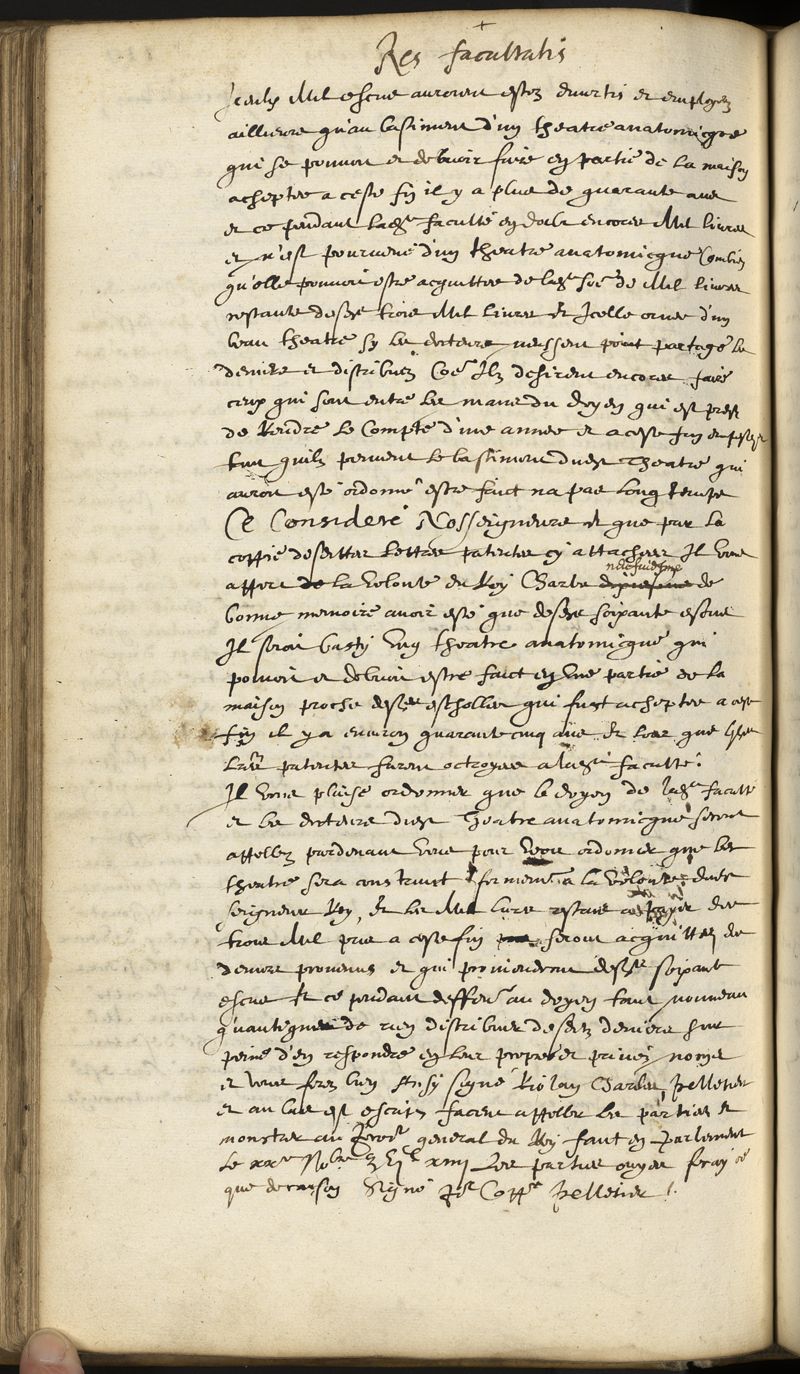 Res facultatis
Iceulx Mil escus auroient estez divertis et employez
aillieurs qu'au bastiment d'un theatre anatomicque
qui se pouvoit et debvoit faire en partie de la maison
acheptee a ceste fin il y a plus de quarante ans
et ce pendant lad. faculté en doibt encores Mil livres
et n'est pourveue d'un theatre anatomicque Combien
qu'elle pouvoit estre acquittee de lad. so.e de Mil livres
restante desd. trois Mil livres et Icelle ornee d'un
beau theatre sy les docteurs n'eussent point partagé les
deniers et distribuez Co.e Ilz desirent encores faire
ceux qui sont entre les mains du doyen qui est prest
de Rendre le Compte d'une annee et a ceste fin empeschent
tant quilz peuvent le bastiment dud. Theatre qui
auroit esté ordonné estre faict na pas long temps
Ce Consideré Nosseigneurs et que par la
coppie desdittes lettres patentes cy attachees Il vous
appert de la volonté du Roy Charles neufuiesme de
bonne memoire avoir esté que desd. soixante escus
Il seroit basty ung theatre anatomicque qui
pouvoit et debvoit estre faict en une partie de la
maison proche desd. escholles qui fust acheptee a ceste
fin il y a environ quarante cinq ans et lors que lesd.
L.res patentes furent octroyees a lad. faculté.
Il vous plaise ordonner que le doyen de lad. faculté
et les docteurs dud. Theatre anatomicque seront
appellez pardevant vous pour veoir ordonner que led.
theatre sera construict conformem.t a la volonté dud.
seigneur Roy, et les Mil livres restans a payer des
trois Mil pris a ceste fin seront acquittez des
deniers provenus et qui proviendront desd. soixante
escus Et ce pendant deffen.s au doyen tant nouveau
qu'antique de rien distribuer desd. deniers sur
peine d'en respondre en leur propres et privez noms
et vous ferez bien Ainsy signé Riolan Charles, Pelletier
et au bas est escript facent appeller les parties et
monstrer au Procur. general du Roy faict en Parlement
le xx.e No.bre
Les parties ouyes feray ce
que de raison Signé Pelletier